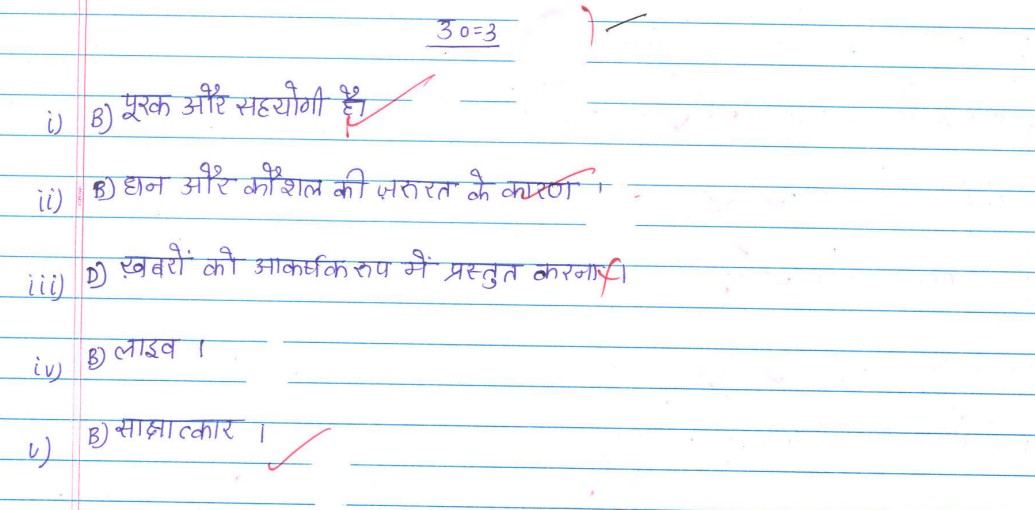 उ०=3
i) B) पूरक और सहयोगी है।
ii) B) धन और कौशल की ज़रुरत के कारण ।
iii) D) ख़बरों को आकर्षक रुप में प्रस्तुत करना।
iv) B) लाइव ।
v) B) साक्षात्कार ।